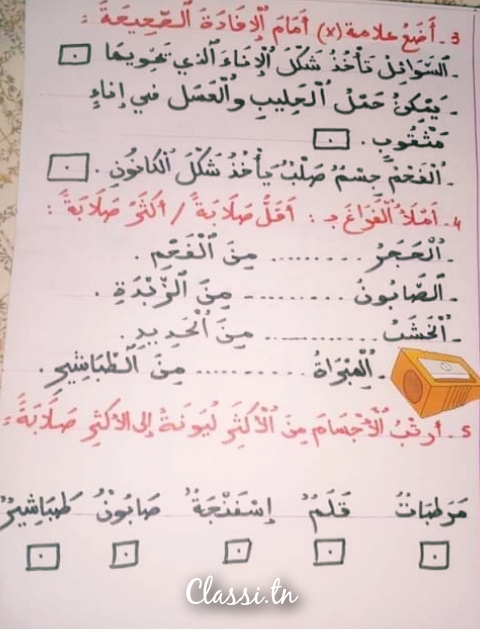 3. أَضَعُ علامة (x) أَمَامَ الْإِفَادَةَ الصَّحِيحَةَ :
ـ السَّوَائِلُ تَأْخُذُ شَكْلَ الْإِنَاءَ الَّذِي تَحْوِيهَا
ـ يُمْكِنُ حَمْلُ الْحَلِيبِ والْعَسَلِ في إِنَاءٍ
مَثْقُوبٍ .
ـ الْفَحْمُ جِسْمٌ صَلْبٌ يَأْخُذُ شَكْلَ الْكَانُونِ .
4. أَمْلَأُ الْفَرَاغَ بـ : أَقَلُّ صَلَابَةً / أَكْثَرُ صَلَابَةً :
ـ الْحَجَرُ ......... مِنَ الْفَحْمِ .
ـ الصَّابُونُ ......... مِنَ الزُّبْدَةِ .
ـ الْخَشَبُ ............ مِنَ الْحَدِيدِ .
ـ الْمِبْرَاةُ .......... مِنَ الطَّبَاشِيرِ .
5. أُرَتِّبُ الْأَجْسَامَ مِنَ الْأَكْثَرِ لُيُونَةً إلى الأكْثَرِ صَلَابَةً :
مَرَطِبَاتُ قَلَمٌ إِسْفَنْجَةٌ صَابُونٌ طَبَاشِيرٌ
Classi.tn